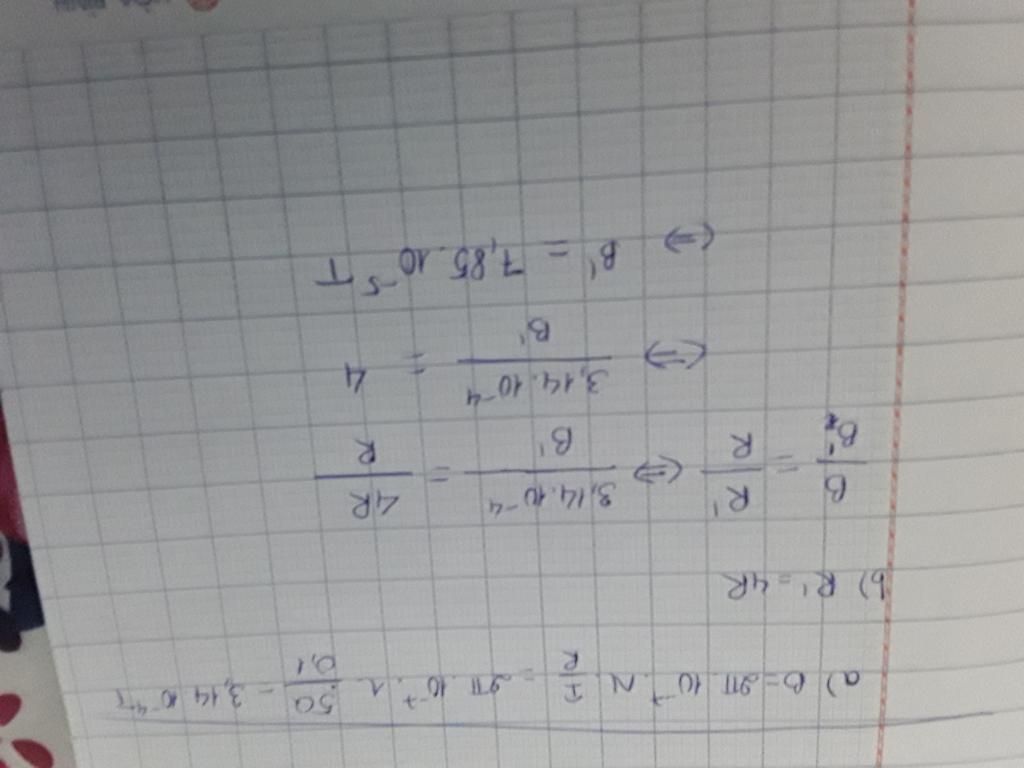 a) B = 2π.10⁻⁷.N.I/R = 2π.10⁻⁷.1.50/0,1 = 3,14.10⁻⁴T
b) R' = 4R
B/B' = R'/R ⇔ 3,14.10⁻⁴/B' = 4R/R
⇔ 3,14.10⁻⁴/B' = 4
⇔ B' = 7,85.10⁻⁵T